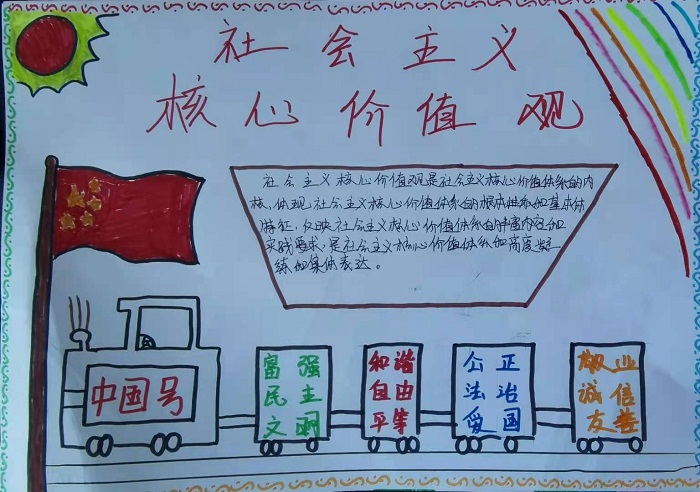 社会主义
核心价值观
社会主义核心价值观是社会主义核心价值体系的内
核,体现社会主义核心价值体系的根本性质和基本
特征,反映社会主义核心价值体系的丰富内容和
实践要求,是社会主义核心价值体系的高度凝
练和集体表达。
中国号
富强
民主
文明
和谐
自由
平等
公正
法治
爱国
敬业
诚信
友善